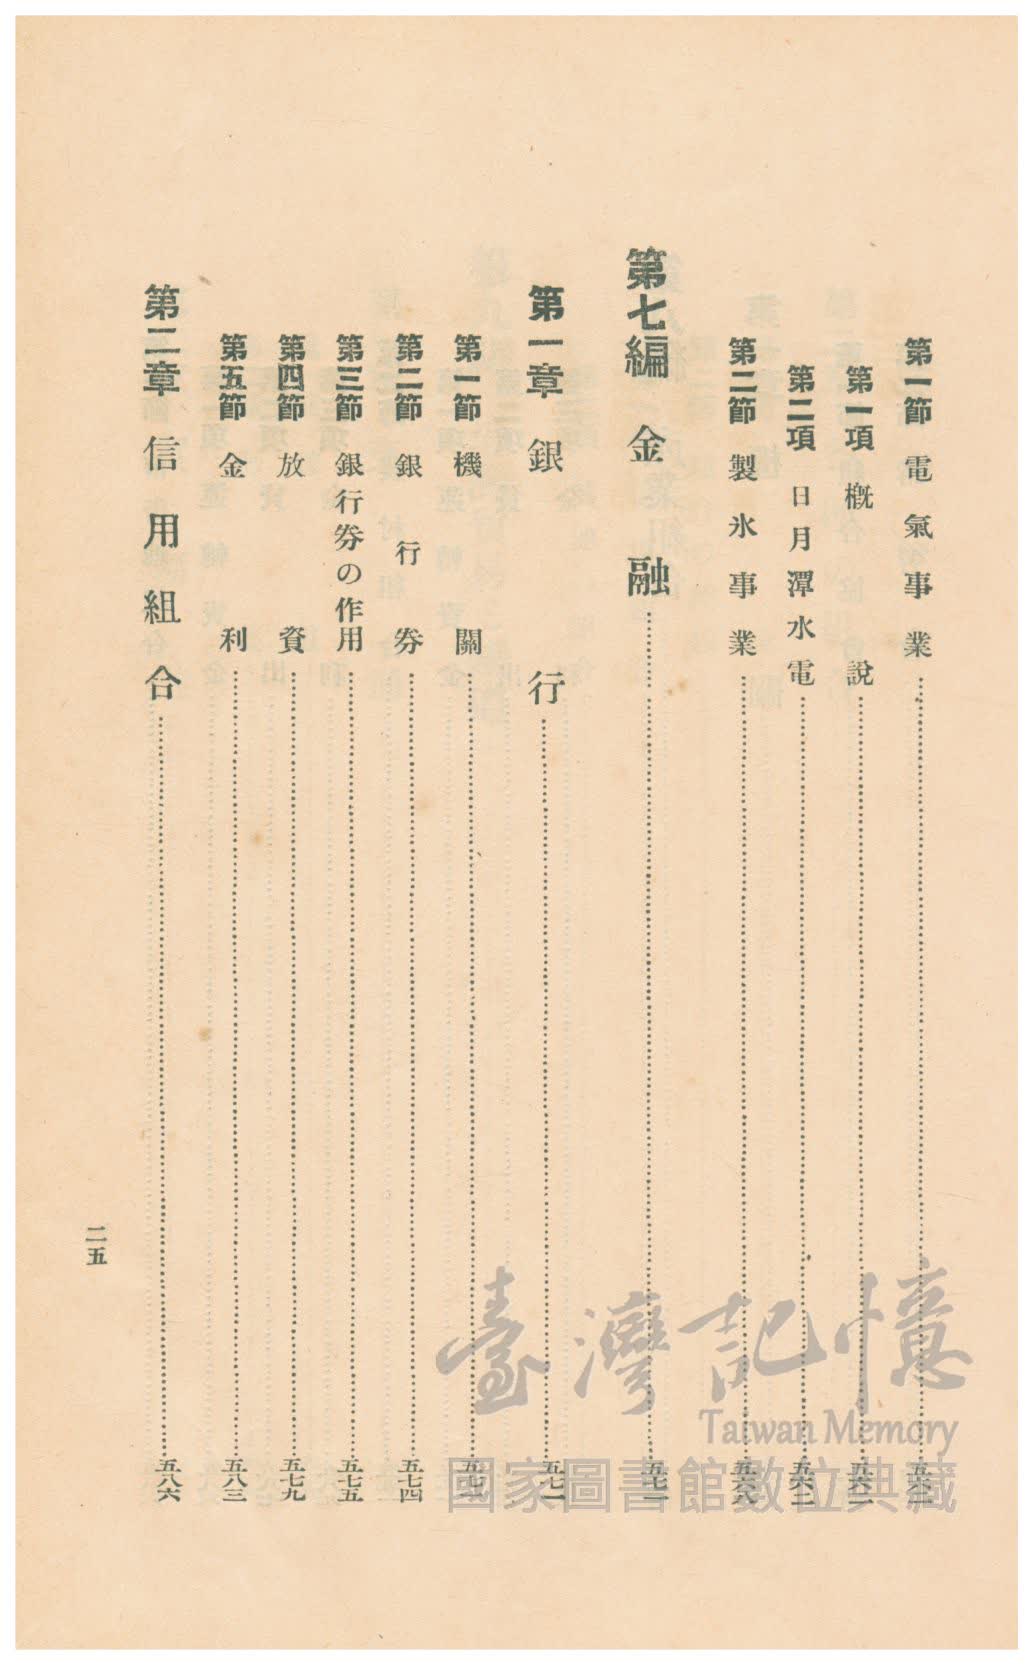 第一節 電氣事業……五六二
第一項 概說……五六二
第二項 日月潭水電……五六二
第二節 製氷事業……五六八
第七編 金融……五七一
第一章 銀行……五七一
第一節 機關……五七一
第二節 銀行券……五七四
第三節 銀行券の作用……五七五
第四節 放資……五七九
第五節 金利……五八三
第二章 信用組合……五八六
二五
臺灣記憶
Taiwan Memory
國家圖書館數位典藏